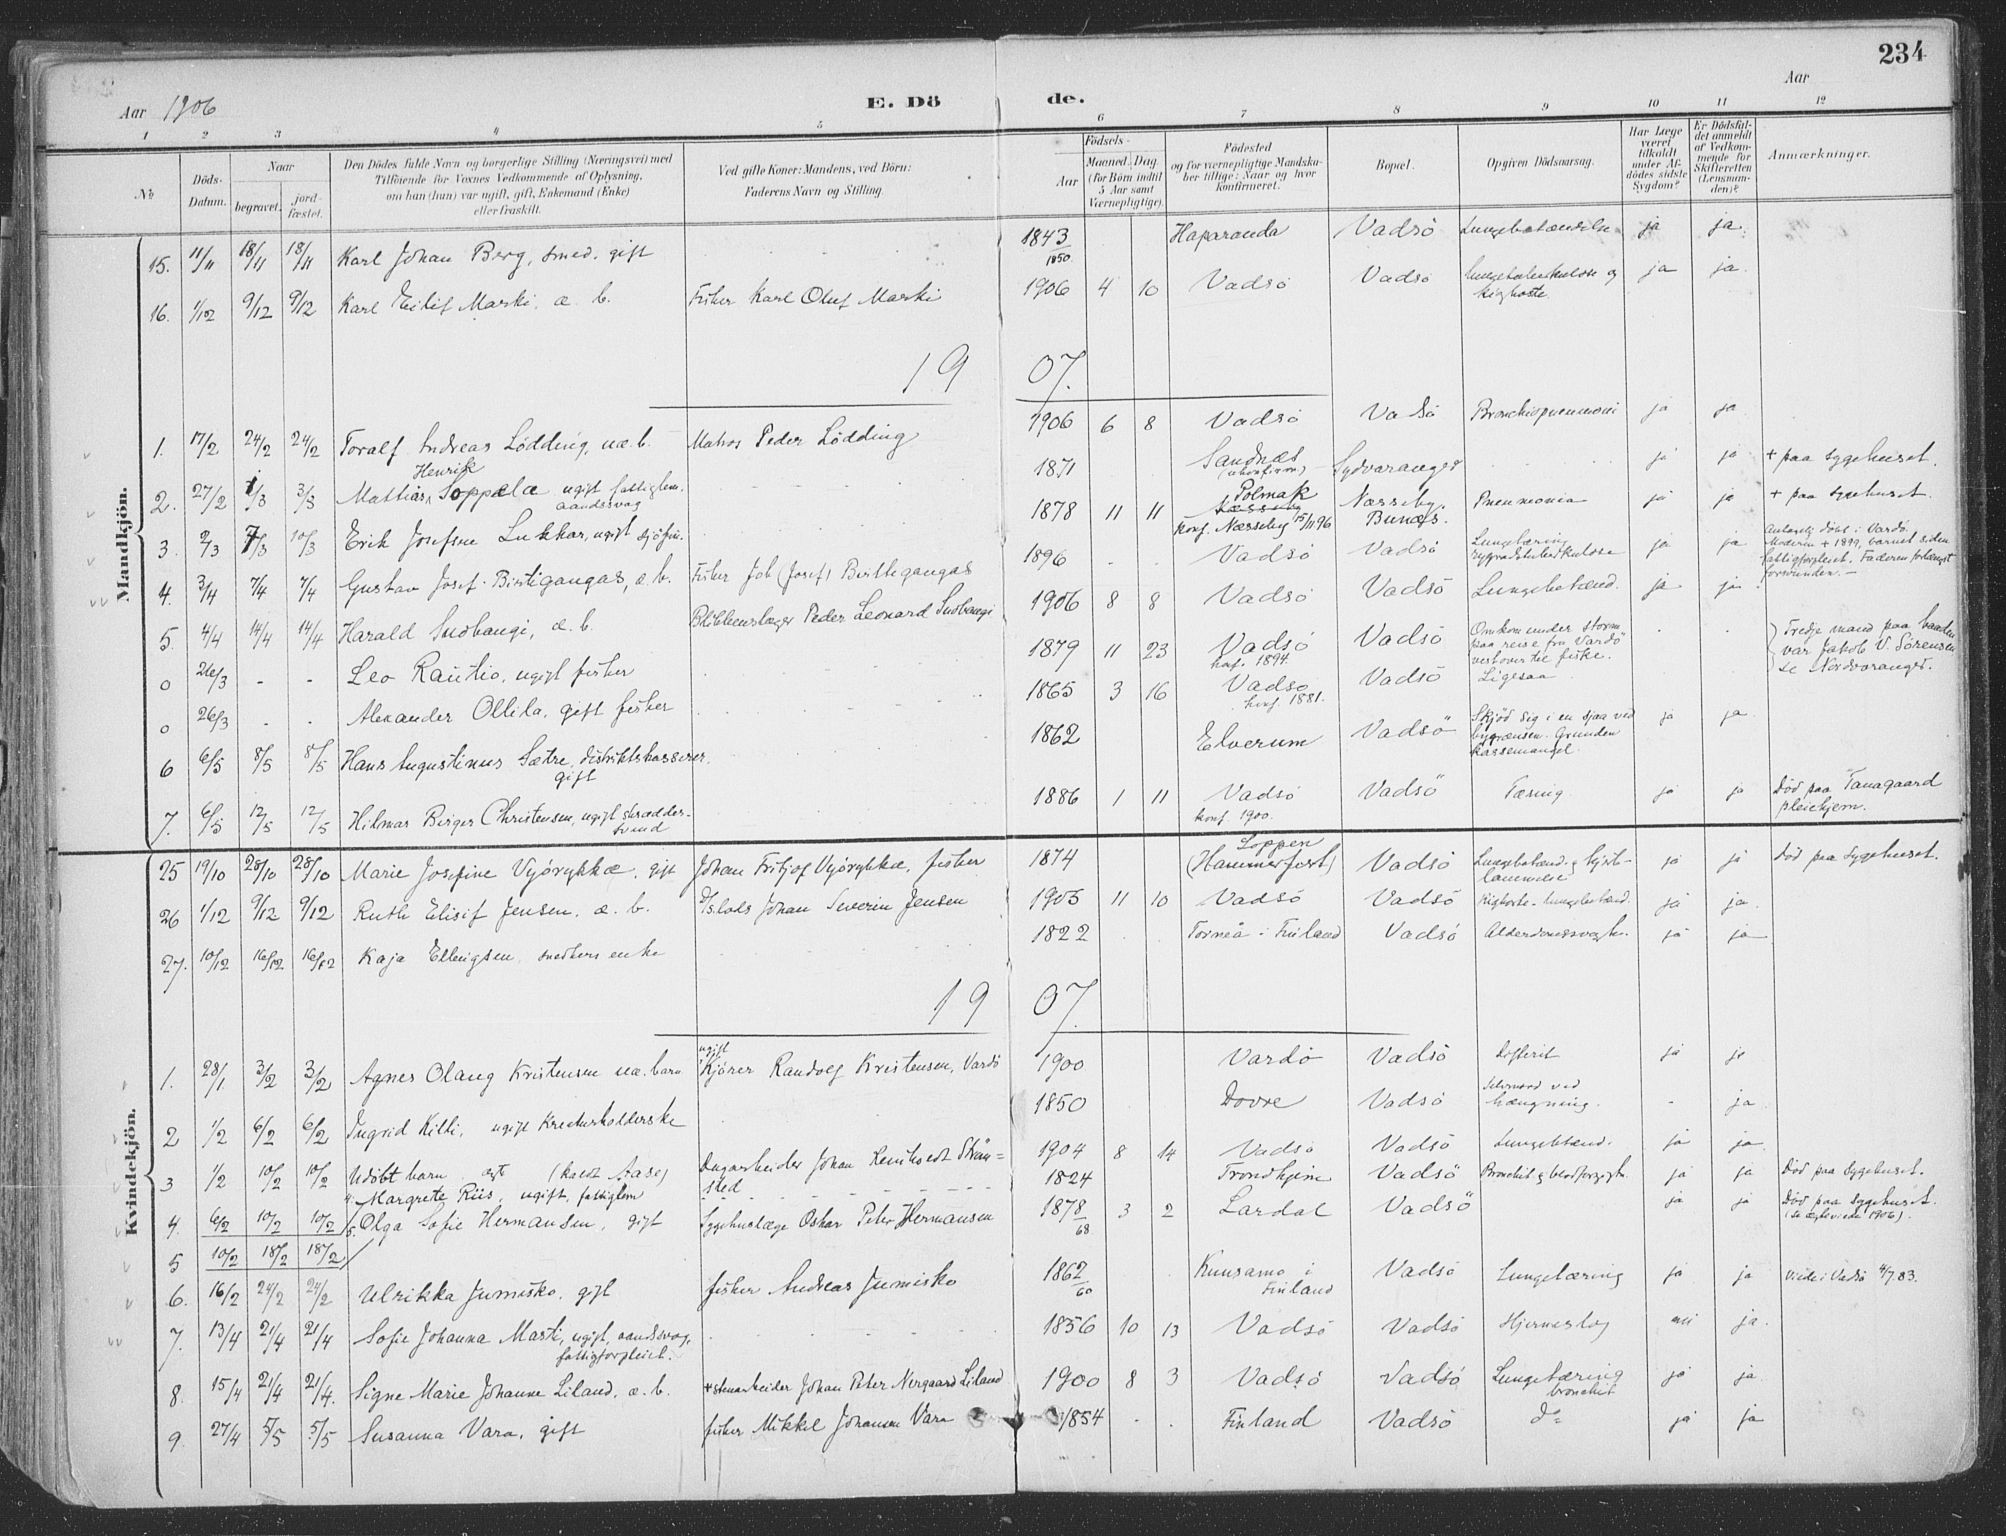 234
Aar 1906 E. Dö de. Aar
1 2 3 4 5 6 7 8 9 10 11 12
No. Döds-Datum. Naar begravet. jord-fæstet. Den Dödes fulde Navn og borgerlige Stilling (Næringsvei) med Tilföiende for Voxnes Vedkommende af Oplysning, om han (hun) var ugift, gift, Enkemand (Enke) eller fraskilt. Ved gifte Koner: Mandens, ved Börn: Faderens Navn og Stilling. Födsels- Aar Maaned. Dag. (for Börn indtil 5 Aar samt Værnepligtige). Födested og for værnepligtige Mandskaber tillige: Naar og hvor konfirmeret. Bopæl. Opgiven Dödsaarsag. Har Læge været tilkaldt under Afdödes sidste Sygdom? Er Dödsfaldet anmeldt af Vedkommende for Skifteretten (Lensmanden)? Anmærkninger.
Mandkjön.
15. 11/11 18/11 18/11 Karl Johan Berg, smed. gift 1843 1850 Haparanda Vadsö Lungebetændelse ja ja
16. 1/12 9/12 9/12 Karl Eilif Marki, æ. b. Fisker Karl Oluf Marki 1906 4 10 Vadsö Vadsö Lungetuberkulose og kighoste. ja ja.
19 07.
1. 17/2 24/2 24/2 Toralf Andreas Lödding, uæ. b. Matros Peder Lödding 1906 6 8 Vadsö Vadsö Bronchiopneumoni ja ja
2. 27/2 1/3 3/3 Mathias Henrik Soppela ugift fattiglem. aandssvag 1871 Sandnæs (konfirm.) Sydvaranger ja ja + paa sygehuset.
3. 2/3 7/3 10/3 Erik Josefsen Lukkar, ugift sjöfin. 1878 11 11 Polmak Næsseby konf. Næsseby 15/11 96 Næsseby. Bunæs. Pneumonia ja ja + paa sygehuset.
4. 3/4 7/4 7/4 Gustav Josef Birtigangas, æ. b. Fisker Job (Josef) Birthegangas 1896 Vadsö Vadsö Lungetæring rygradstuberkulose ja ja döbt i Vardö. Moderen + 1899, barnet siden fattigforpleiet. Faderen forlængst forsvunden. —
5. 4/4 14/4 14/4 Harald Snobangi, æ. b. Blikkenslager Peder Leonard Snobangi 1906 8 8 Vadsö Vadsö Lungebetænd. ja ja
0 26/3 - - Leo Rautio, ugift fisker 1879 11 23 Vadsö konf. 1894. Vadsö Omkom under storm paa reise fra Vardö vestover til fiske. Tredje mand paa baaden var Jakob V. Sörensen se Nordvaranger.
0 26/3 - - Alexander Ollila, gift fisker 1865 3 16 Vadsö konf. 1881. Vadsö Ligesaa
6 6/5 8/5 8/5 Hans Augustinus Sætre, distriktskasserer, gift 1862 Elverum Vadsö Skjöd sig i en sjaa ved bygrænsen. Grunden kassemangel. ja ja
7. 6/5 12/5 12/5 Hilmar Birger Christensen, ugift skrædder-svend 1886 1 11 Vadsö konf. 1900. Vadsö Tæring ja ja Död paa Tanagaard pleiehjem.
Kvindekjön.
25 19/10 28/10 28/10 Marie Josefine Vyörykkæ, gift Johan Fritjof Vyörykkæ, fisker 1874 Loppen (Hammerfest) Vadsö Lungebetænd. & hjertlammelse ja ja Död paa sygehuset.
26 1/12 9/12 9/12 Ruth Elisif Jensen, æ. b. Johan Severin Jensen 1905 11 10 Vadsö Vadsö Kighoste - Lungebetænd. ja ja.
27. 10/12 16/12 16/12 Kaja Ellingsen, snedkers enke 1822 Torneå i Finland Vadsö ja ja
19 07.
1. 28/1 3/2 3/2 Agnes Olaug Kristensen uæ. barn ugift Kjörer Randolf Kristensen, Vardö 1900 Vardö Vadsö Difterit ja ja
2 1/2 6/2 6/2 Ingrid Kilti, ugift kreaturholderske 1850 Dovre Vadsö Selvmord ved hængning. - ja
3 1/2 10/2 10/2 Udöbt barn ægte (kaldt Aase) Dagarbeider Johan Strömsted 1904 8 14 Vadsö Vadsö Lungebetænd. ja ja
4. 6/2 10/2 10/2 Margrete Riis, ugift, fattiglem 1824 Trondhjem Vadsö Bronchit & blodforgiftn. ja ja Död paa sygehuset.
5 10/2 18/2 18/2 Olga Sofie Hermansen, gift Oskar Peter Hermansen 1878 68 3 2 Lardal Vadsö ja ja Död paa sygehuset. (se ægteviede 1906).
6. 16/2 24/2 24/2 Ulrikka Jumisko, gift fisker Andreas Jumisko 1862 60 Kuusamo i Finland Vadsö Lungetæring ja ja Viede i Vadsö 4/7.83.
7. 13/4 21/4 21/4 Sofie Johanna Marti, ugift, aandssvag, fattigforpleiet. 1856 10 13 Vadsö Vadsö Hjerneslag nei ja.
8. 15/4 21/4 21/4. Signe Marie Johanne Liland, æ. b. + stenarbeider Johan Peter Nergaard Liland 1900 8 3 Vadsö Vadsö Lungetæring bronchit ja ja
9. 27/4 5/5 5/5 Susanna Vara, gift fisker Mikkel Johansen Vara 1854 Finland Vadsö do ja ja